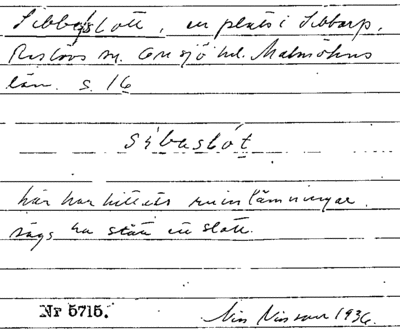 Sibbaslott, en plats i Sibbarp,
Röstånga sn. Onsjö hd. Malmöhus
län. s. 16
sibaslót
här har hittats ruinlämningar.
sägs ha stått ett slott.
Nr 5715.
Nils Nilsson 1936.